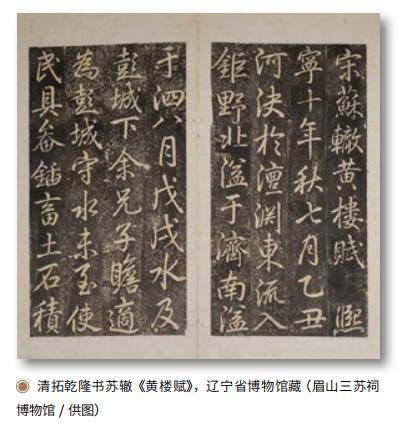 宋蘇轍黃樓賦 熙
寧十年秋七月乙丑
河決於澶淵東流入
鉅野北溢于濟南溢
于泗八月戊戌水及
彭城下余兄子瞻適
為彭城守水未至使
民具畚鍤畜土石積
清拓乾隆书苏辙《黄楼赋》，辽宁省博物馆藏（眉山三苏祠
博物馆 / 供图）